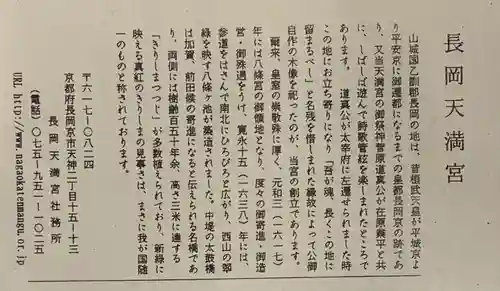 長岡天満宮
山城国乙訓郡長岡の地は、昔桓武天皇が平城京よ
り平安京に御遷都になるまでの皇都長岡京の跡であ
り、又当天満宮の御祭神菅原道真公が在原業平と共
に、しばしば遊んで詩歌管絃を楽しまれたところで
あります。 道真公が太宰府に左遷せられました時
この地にお立ち寄りになり「吾が魂、長くこの地に
留まるべし」と名残を惜しまれた縁故によって公御
自作の木像を祀ったのが、当宮の創立であります。
爾来、皇室の崇敬殊に厚く、元和三(一六一七)
年には八條宮の御領地となり、度々の御寄進・御造
営・御殊遇をうけ、寛永十五(一六三八)年には、
参道をはさんで南北にひろびろと広がり、西山の翠
緑を映す八條ヶ池が築造されました。中堤の太鼓橋
は加賀、前田侯の寄進になると伝えられる名橋であ
り、両側には樹齢百五十年余、高さ三米に達する
「きりしまつつじ」が多数植えられており、新緑に
映える真紅のきりしまの見事さは、まさに我が国随
一のものと称されております。
〒六一七-〇八二四
京都府長岡京市天神二丁目十五-十三
長岡天満宮社務所
(電話)〇七五-九五一-一〇二五
URL http://www.nagaokatenmangu.or.jp